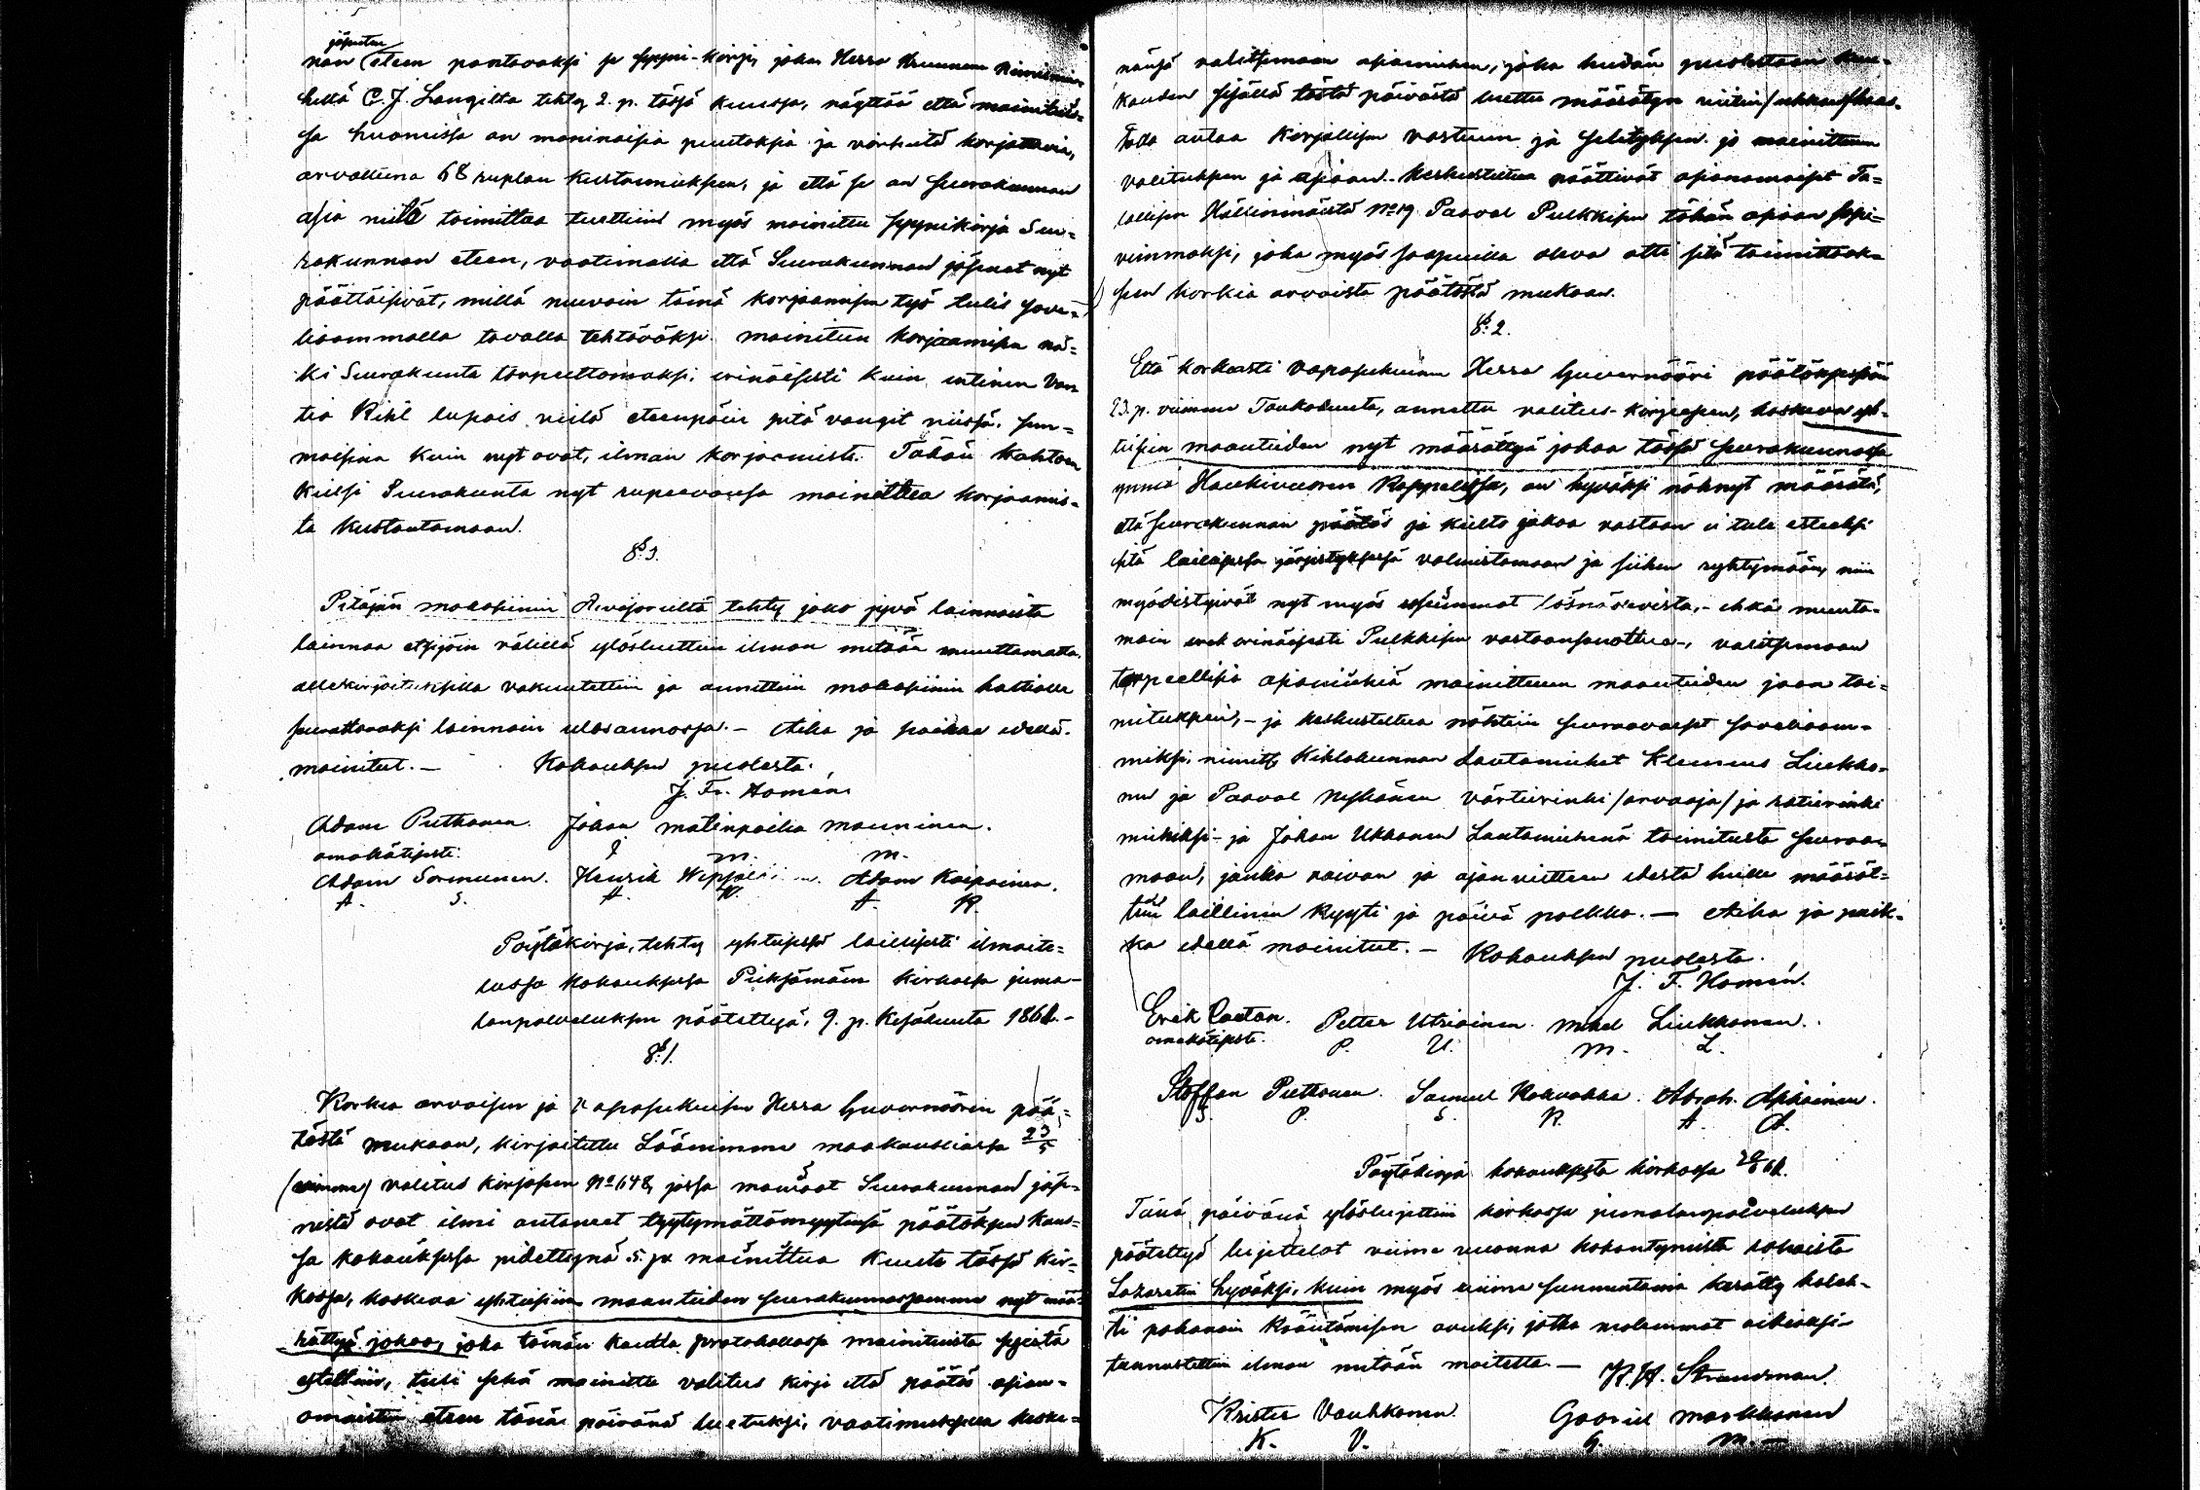 jäsenten
nan eteen pantavaksi se syyni-kirja, joka Herra Kruunun Nimismie-
heltä C. J. Langilta tehty 2. p. tässä kuussa, näyttää että mainituis-
sa huoneissa on moninaisia puutoksia ja vikoja korjattavia,
arvattuna 68 ruplan kustannuksen, ja että se on Seurakunnan
asia niitä toimittaa tuottiin myös mainittu syynikirja Seu-
rakunnan eteen, vaatimalla että Seurakunnan jäsenet nyt
päättäisivät, millä neuvoin tämä korjaamisen työ tulis sove-
liaammalla tavalla tehtäväksi. mainitun korjaamisen näk-
ki Seurakunta tarpeettomaksi, erinäisesti kuin entinen Van
tio Kihl lupais vielä eteenpäin pitä vangit niissä, sem-
moisina kuin nyt ovat, ilman korjaamista. Tähän katsoen
kielsi Seurakunta nyt rupeevansa mainittua korjaamis-
ta kustantamaan.
§ 3.
Pitäjän makasiinin Arvioreiltä tehty jako jyvä lainoista
lainaa etsijöin välillä ylösluettiin ilman mitään muuttamatta,
allekirjoituksilla vakuutettiin ja annettiin makasiinin haltialle
seurattavaksi lainain ulosannossa. – Aika ja paikka edellä.
mainitut. – Kokouksen puolesta.
J. Fr. Homén.
Adam Puttonen. Johan Matinpoika Manninen.
omakätisesti. J. M. M.
Adam Sormunen. Henrik Adam Karpainen.
A. S. H. A. K.
Pöytäkirja, tehty yhteisessä laillisesti ilmoite-
tussa Kokouksessa Pieksämäen kirkossa juma-
lanpalveluksen päätettyä, 9. p. Kesäkuuta 186
§ 1.
Korkia arvoisen ja Vapasukuisen Herra Guvernöörin pää-
töstä mukaan, kirjoitettu Läänimme maakansliassa 23/5
(viimme) valitus kirjaseen No 648, jossa Seurakunnan jäse-
nistä ovat ilmi antaneet tyytymättömyytensä päätöksen kans-
sa kokouksessa pidettynä 5. p. mainittua Kuuta tässä Kir-
kossa, koskeva yhteisiin maanteiden Seurakunnassamme nyt mää-
rättyä jakoa, joka tämän kautta protokollassa mainituista syistä
estettiin, tuli sekä mainittu valitus kirja että päätös asian-
omaisten eteen tänä päivänä luetuksi, vaatimuksella keske-
nänsä valitsemaan asiamiehen, joka heidän puolestaan kuu-
kauden sisällä tästä päivästä luettu määrätyn
taa antaa kirjallisen vastuun ja selityksen jo mainittuun
valitukseen ja asiaan. Keskusteltua päättivät asianomaiset Ta-
lollisen Hällinmäestä No 19 Paaval Pulkkisen tähän asiaan sopi-
vimmaksi, joka myös saapuilla oleva otti sitä toimittaak-
sen korkia arvoista päätöstä mukaan.
§ 2.
Että korkeasti vapasukuinen Herra Guvernööri päätöksessään
23. p. viimme Toukokuuta, annettu valitus-kirjaseen, koskeva yh-
teisien maanteiden nyt määrättyä jakoa tässä Seurakunnassa
ynnä Haukivuoren Kappelissa, on hyväksi nähnyt määrätä,
että Seurakunnan päätös ja kielto jakoa vastaan ei tule esteeksi
sitä laillisessa järjestyksessä valmistamaan ja siihen ryhtymään, niin
myödistyivät nyt myös useimmat läsnäolevista, – ehkä muuta-
main erinäisesti Pulkkisen vastaanpanottua –, valitsemaan
tarpeellisia asiamiehiä mainittuun maanteiden jaon toi-
mitukseen, – ja keskusteltua nähtiin seuraavaiset soveliaam-
miksi, nimitt. Kihlakunnan Lautamiehet Klemens Liukko-
nen ja Paaval Nykänen värtierinki /arvaaja/ ja ratierinki
miehiksi – ja Johan Ukkonen Lautamiehenä toimitusta seuraa-
maan, jonka vaivan ja ajan vietteen edestä heille määrät-
tiin laillinen kyyti ja päivä palkka. – Aika ja paik-
ka edellä mainitut. – Kokouksen puolesta.
J. F. Homén.
Erik Paetan. Petter Utriainen. Mikel Liukkonen.
omakätisesti. P. U. M. L.
Staffan Puttonen. Samuel Kokvakka. Abrah. Asikainen.
S. P. S. K. A. A.
Pöytäkirja kokouksesta kirkossa
Tänä päivänä ylösluettiin kirkossa jumalanpalveluksen
päätettyä luettelot viime vuonna kokontyneistä rahoista
Lasaretin hyväksi, kuin myös viime sunnuntaina kerätty kolek-
ti pakanain kääntämisen avuksi, jotka molemmat oikeaksi
tunnustettiin ilman mitään moitetta. – K. H. Strandman.
Krister Vauhkonen. Gabriel Markkanen
K. V. G. M. –